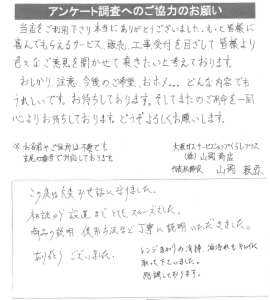 アンケート調査へのご協力のお願い
当店をご利用下さり本当にありがとうございました。もっと皆様に
喜んでもらえるサービス、販売、工事受付を目ざして皆様より
色々なご意見を聞かせて頂きたいと考えております。
おしかり、注意、今後のご希望、おホメ...どんな内容でも
うれしいです。お待ちしております。そしてまたのご用命を一同
心よりお待ちしております。どうぞよろしくお願いします。
※お名前やご住所は不要です
大阪ガスサービスショップ
(株)山岡商店
代表取締役 山岡
この度は大変お世話になりました。
相談から設置までとてもスムーズでした。
商品の説明、使用方法など丁寧に説明いただきました。
ありがとうございました。
レンジまわりの清掃、油汚れもキレイに
取って下さいました。
感謝しております。